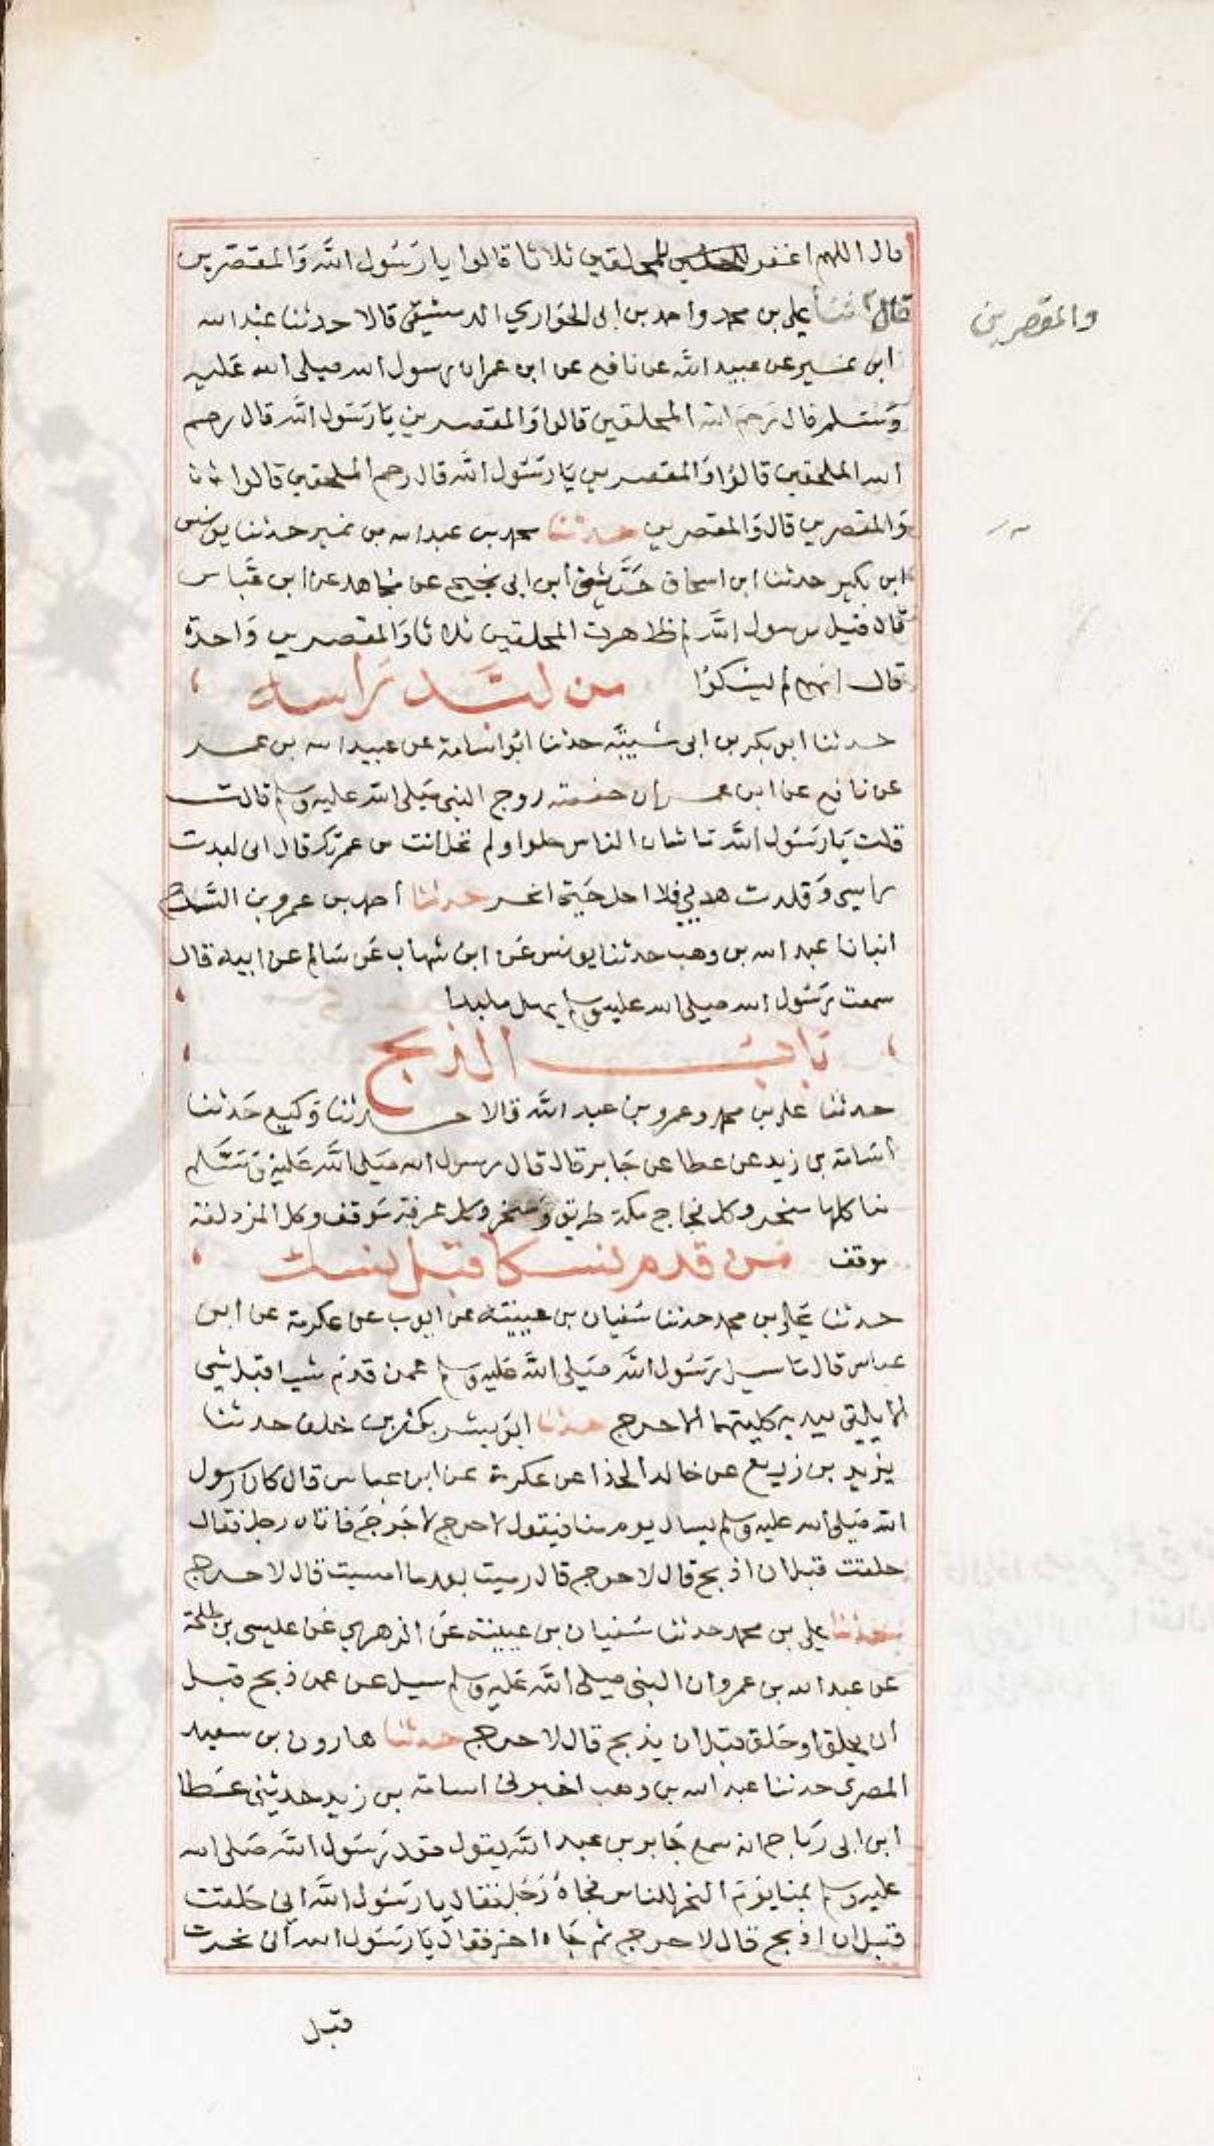 قال اللهم اغفر للمحلقين ثلاثا قالوا يا رَسُول اللَّه وَالمقصّرين
قال حدثنا علي بن محمد واحمد بن ابى الحَوَاري الدمشيقى قالا حدثنا عبْد الله
والمقصرين
ابن نمير عن عبيد اللَّه عن نافع عن ابن عمر ان رسول الله صلى الله عَليه
وَسَلم قال رَحِمَ الله المحلقين قالوا وَالمقصرين يَا رَسُول اللَّه قال رحم
الله الملحقين قالوُا وَالمقصرين يَا رَسُول اللَّه قال رحم الملحقين قالوا
وَالمقصرين قال وَالمقصرين حدثنا محمد بن عبد الله بن نمير حدثنا يونس
ابن بكير حدثنا ابن اسحاق حَدَّثنِى ابن ابى نجيح عن مُجاهد عن ابن عَبَّاس
قال قيل يرسول اللَّه لم ظاهرت المحلقين ثلاثا وَالمقصرين وَاحدَة
قال انهم لم يشكوُا من لبَّد رَاسه
حدثنا ابو بكر بن ابى شيبَه حدثنا ابُو اسَامة عن عبيد الله بن عمر
عن نافع عن ابن عمر ان حفصة زوج النبى صَلى اللَّه عليه وسلم قالت
قلت يَا رَسُول اللَّه مَا شان الناس حلوا ولم تحل انت من عمرتك قال انى لبدت
راسي وَقلدت هديي فلا احل حَتى انحر حدثنا أحمد بن عمرو بن السَّرح
انبانا عبد الله بن وهب حدثنا يونس عَن ابن شهاب عَن سَالم عن ابيه قال
سمعت رَسُول الله صلى الله عليه وسلم يهل ملبدا
بَابُ الذبح
حدثنا علي بن محمد وعمرو بن عبد اللَّه قالا حدثنا وَكيع حَدثنا
أسَامة بن زيد عن عطا عن جَابر قال قال رسول الله صَلى اللَّه عَليْهِ وَسَلم
منا كلها منحر وكل فجاج مكة طريق وَمنحر وكل عرفة مَوقف وكل المزدلفة
موقف مَن قدم نسكا قبل نسك
حدثنا عَلي بن محمد حدثنا سُفيان بن عيينة عن ايوب عن عكرمة عن ابن
عباس قال مَا سيل رَسُول اللَّه صَلى اللَّه عَليه وسلم عمن قدم شيا قبل شي
الا يلقى بيديه كليتهما الا حرج حدثنا ابُو بشر بكر بن خلف حدثنا
يزيد بن زريع عن خالد الحذا عن عكرمة عن ابن عباس قال كان رَسول
الله صَلى الله عليه وسلم يسال يوم منا فيقول لا حرج لا حَرَجَ فاتاه رجل فقال
حلقت قبل ان اذبح قال لا حرج قال رميت بعد ما امسيت قال لا حرج
حدثنا علي بن محمد حدثنا سُفيان بن عيينة عَن الزهري عَن عليسى بن طلحة
عن عبد الله بن عمرو ان النبى صلى اللَّه عَليه وسلم سيل عن عمن ذبح قبل
ان يحلق او حَلق قبل ان يذبح قال لا حرج حدثنا هارون بن سعيد
المصرى حدثنا عبد الله بن وهب اخبرنى اسامة بن زيد حدثني عَطا
ابن ابى رَباح انه سمع جَابر بن عبد اللَّه يقول قعد رَسُول اللَّه صَلى الله
عليه وسلم بمنا يوَم النحر للناس فجاهُ رَجُل فقال يا رَسُول اللَّه اني حَلقت
قبل ان اذبح قال لا حرج ثم جَاه اخر فقال يَا رَسُول الله انى نحرت
قبل